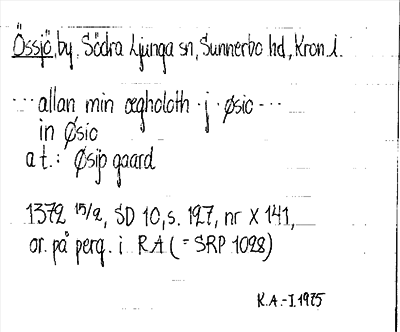 Össjö, by, Södra Ljunga sn, Sunnerbo hd, Kron.l.
··· allan min ægholoth · j · øsio ···
in Øsio
a t.: Øsjö gaard
1372 15/2, SD 10, s. 127, nr X 141,
or. på perg. i RA (= SRP 1028)
K.A.-I. 1975